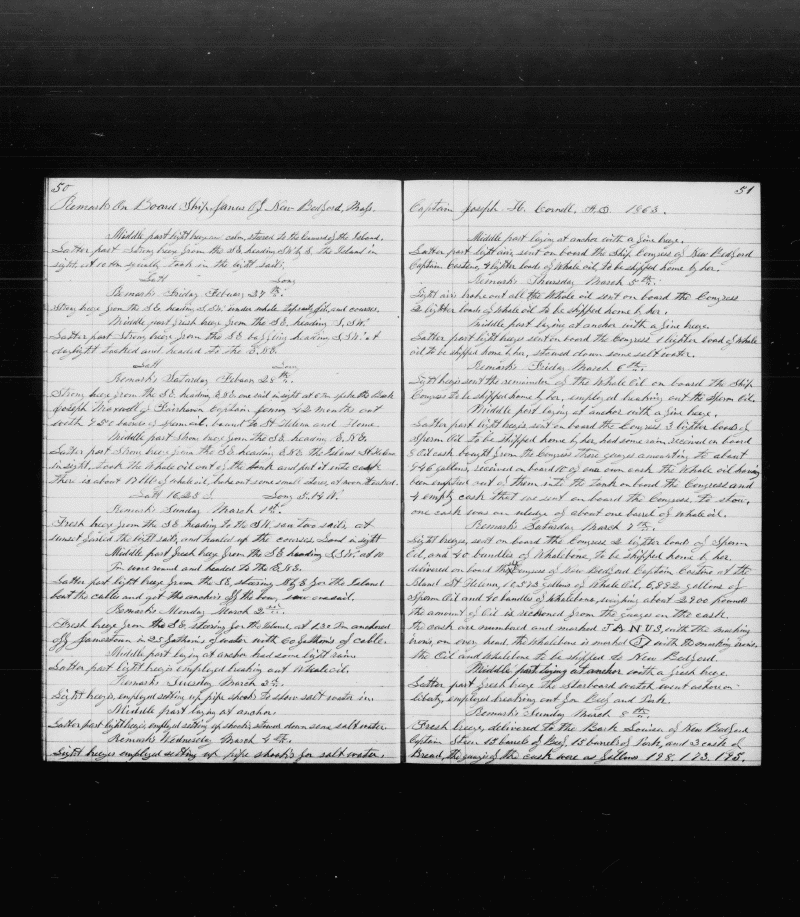 50
Remarks On Board Ship Janus Of New Bedford, Mass.
Middle part light breeze and calm, steered to the leward of the Island.
Latter part Strong breeze from the S.E. heading S.W. by S. the Island in
sight, at 10 Am took in the light sails,
Latt Long
Remarks Friday Febuary 27th.
Strong breeze from the S.E. heading S.S.W. under whole Topsails, jib, and courses.
Middle part fresh breeze from the S.E. heading S,S.W.
Latter part Strong breeze from the S.E. heading S,S.W. at
daylight tacked and headed to the E.N.E.
Latt Long
Remarks Saturday Febuary 28th.
Strong breeze from the S.E. heading E.N.E. one sail in sight at 6 Pm spoke the Bark
Joseph Maxwell of Fairhaven Captain 42 months out
with 480 barrels of sperm oil, bound to St Helena and Home.
Middle part Strong breeze from the S.E. heading E.N.E.
Latter part Strong breeze from the S.E. heading E.N.E. the Island St Helena
in sight, took the Whale oil out of the tank and put it into cask
there is about 17 bbl of whale oil, at noon tacked.
Latt 16,23 S. Long 5.14 W.
Remarks Sunday March 1st.
Fresh breeze from the S.E. heading to the S.W. saw two sails at
sunset furled the light sails, and hauled up the courses. Land in sight
Middle part fresh breeze from the S.E. heading S.S.W. at 10
Pm wore round and headed to the E.N.E.
Latter part light breeze from the S.E. steering N by E for the Island
bent the cables and got the anchors off the bow, saw one sail.
Remarks Monday March 2nd.
Fresh breeze from the S.E. steering for the Island at 1.30 Pm anchored
off Jamestown in 25 fathoms of water with 60 fathoms of cable.
Middle part laying at anchor had some light rain.
Latter part light breezes employed breaking out whale oil.
Remarks Tuesday March 3d.
Light breezes, employed setting up pipe shooks to stow salt water in
Middle part lay at anchor.
Latter part light breezes, employed setting up shooks, stowed down some salt water.
Remarks Wednesday March 4th.
Light breezes employed setting up pipe shooks for salt water.
51
Captain Joseph H. Cornell, A.D. 1863.
Middle part laying at anchor with a fine breeze.
Latter part light airs, sent on board the Ship Congress of New Bedford
Captain Castino, 4 lighter loads of Whale oil, to be shipped home by her.
Remarks Thursday March 5th.
Light airs broke out all the Whale oil sent on board the Congress
2 lighter loads of Whale oil to be shipped home by her.
Middle part laying at anchor with a fine breeze.
Latter part light breezes sent on board the Congress 1 lighter load of Whale
oil to be shipped home by her, stowed down some salt water.
Remarks Friday March 6th.
Light breezes sent the remainder of the Whale Oil on board the Ship
Congress to be shipped home by her, employed breaking out the Sperm Oil.
Middle part laying at anchor with a fine breeze.
Latter part light breezes sent on board the Congress 3 lighter loads of
Sperm Oil to be shipped home by her, had some rain, received on board
8 Oil cask bought from the Congress there gauges amounting to about
946 gallons, received on board 10 of our own cask the Whale oil having
been emptied out of them into the Tank on board the Congress and
4 empty cask that was sent on board the Congress to stow,
one cask was an ullege of about one barrel of whale oil.
Remarks Saturday March 7th.
Light breezes, sent on board the Congress 2 lighter loads of Sperm
Oil, and 40 bundles of Whalebone, to be shipped home by her.
delivered on board the Ship Congress of New Bedford Captain Castino at the
Island St Helena, 12,573 gallons of Whale Oil, 6,892 gallons of
Sperm Oil and 40 bundles of whalebone, weighing about 2900 pounds
the amount of Oil is reckoned from the gauges on the cask.
the cask are numbered and marked JANUS, with the marking
irons, on every head, the Whalebone is marked J with the marking irons.
the Oil and Whalebone to be shipped to New Bedford.
Middle part laying at anchor with a fresh breeze.
Latter part fresh breeze the starboard watch went ashore on
liberty, employed breaking out for Beef and Pork.
Remarks Sunday March 8th.
Fresh breeze, delivered to the Bark Louisa of New Bedford
Captain Steen 13 barrels of Beef, 13 barrels of Pork, and 3 cask of
Bread, the gauges of the cask were as follows 198. 173. 195.